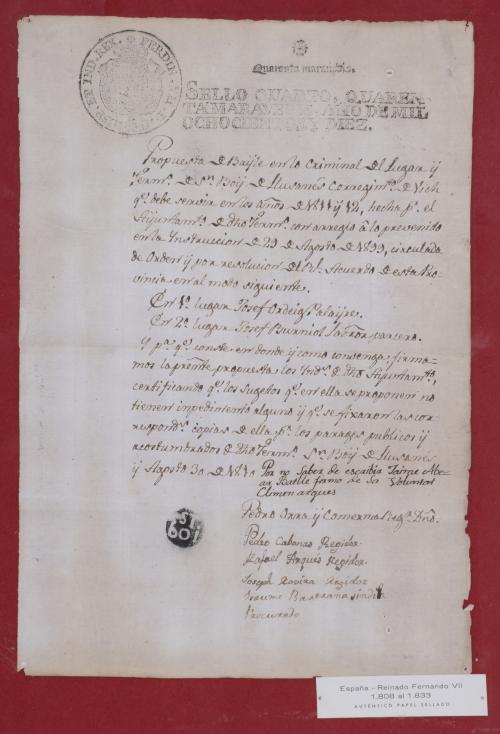 HISP. ET IND. REX. FERDIN. VII. D. G.
Quarenta maravedis.
SELLO QUARTO, QUAREN-
TA MARAVEDIS, AÑO DE MIL
OCHOCIENTOS Y DIEZ.
Propuesta de Bayle en lo Criminal del Lugar y
Term.º de Sn. Boÿ de Llusanés Corregim.to de Vich
q.e debe servir en los años de 1811 y 12, hecha p.r el
Aÿuntam.to de dho Term.º con arreglo â lo prevenido
en la Instruccion de 29 de Agosto de 1899, circulada
de Orden ÿ por resolucion del Rl. Acuerdo de esta Pro-
vincia en al modo siguiente.
En 1º lugar Josef Ordeig Palaÿre.
En 2º lugar Josef Burniol Labrador parcero.
Y pa. q.e conste en donde ÿ como convenga, firma-
mos la prẽnte propuesta los Ind.s de dho Aÿuntam.to,
certificando q.e los Sugetos q.e en ella se proponen no
tienen inpedimento alguno ÿ q.e se fixaron las cor-
respond.s copias de ella p.r los parages publicos ÿ
acostumbrados de dho Term.º Sn. Boÿ de Llusanes
ÿ Agosto 30 de 1810 Por no Saber de escribir Jaime
Batlle firmo de Sa Voluntat
Climen arques
Pedro Orra y Comerma Reg.r D.no
Pedro Cabanas Regidor
Rafael Arqués Regidor
Joseph Rovira Regidor
Jaume Sindich
Procurado
S
60
España - Reinado Fernando VII
1.808 al 1.833
AUTÉNTICO PAPEL SELLADO